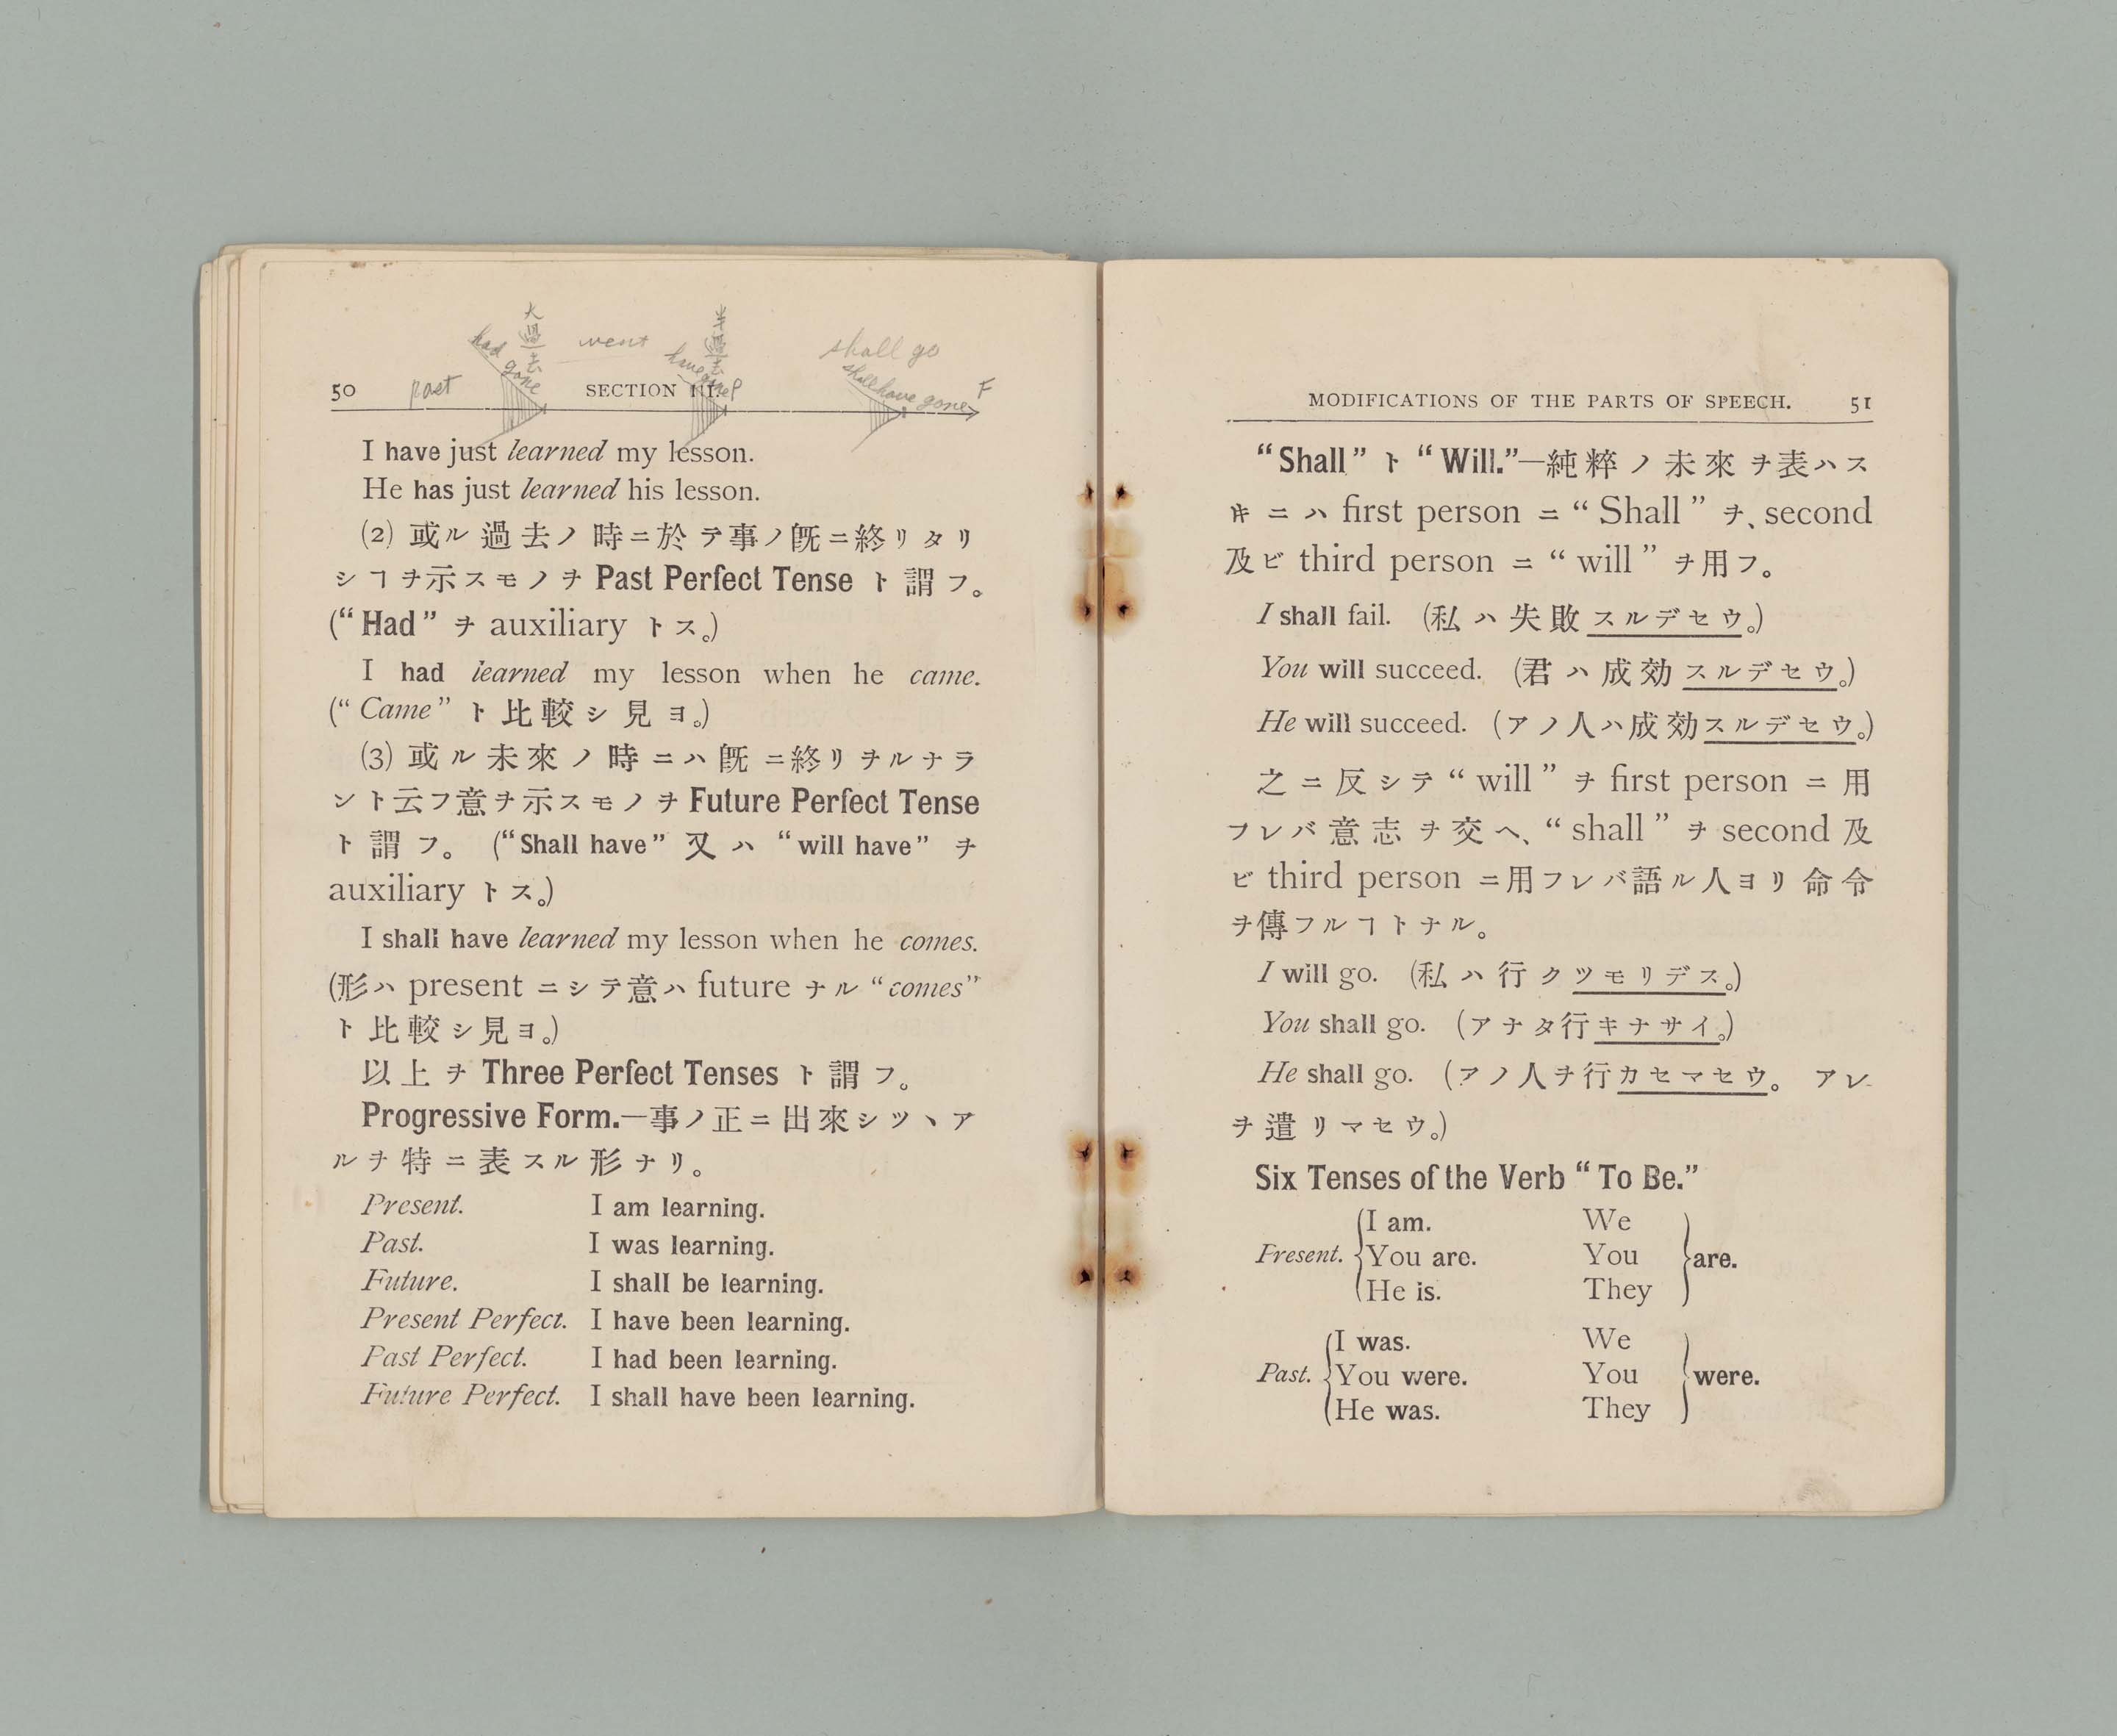 大過去
半過去
had gone
went
have gone
shall go
shall have gone
past
P
F
50
SECTION III.
I have just learned my lesson.
He has just learned his lesson.
(2) 或ル過去ノ時ニ於テ事ノ旣ニ終リタリ
シヿヲ示スモノヲ Past Perfect Tense ト謂フ。
(“Had” ヲ auxiliary トス。)
I had learned my lesson when he came.
(“Came” ト比較シ見ヨ。)
(3) 或ル未來ノ時ニハ旣ニ終リヲルナラ
ント云フ意ヲ示スモノヲ Future Perfect Tense
ト謂フ。 (“Shall have” 又ハ “will have” ヲ
auxiliary トス。)
I shall have learned my lesson when he comes.
(形ハ present ニシテ意ハ future ナル “comes”
ト比較シ見ヨ。)
以上ヲ Three Perfect Tenses ト謂フ。
Progressive Form.—事ノ正ニ出來シツヽア
ルヲ特ニ表スル形ナリ。
Present. I am learning.
Past. I was learning.
Future. I shall be learning.
Present Perfect. I have been learning.
Past Perfect. I had been learning.
Future Perfect. I shall have been learning.
MODIFICATIONS OF THE PARTS OF SPEECH. 51
“Shall” ト “Will.”—純粹ノ未來ヲ表ハス
𪜈ニハ first person ニ “Shall” ヲ、second
及ビ third person ニ “will” ヲ用フ。
I shall fail. (私ハ失敗スルデセウ。)
You will succeed. (君ハ成効スルデセウ。)
He will succeed. (アノ人ハ成効スルデセウ。)
之ニ反シテ “will” ヲ first person ニ用
フレバ意志ヲ交ヘ、“shall” ヲ second 及
ビ third person ニ用フレバ語ル人ヨリ命令
ヲ傳フルヿトナル。
I will go. (私ハ行クツモリデス。)
You shall go. (アナタ行キナサイ。)
He shall go. (アノ人ヲ行カセマセウ。 アレ
ヲ遣リマセウ。)
Six Tenses of the Verb “To Be.”
I am. We
Present. You are. You are.
He is. They
I was. We
Past. You were. You were.
He was. They